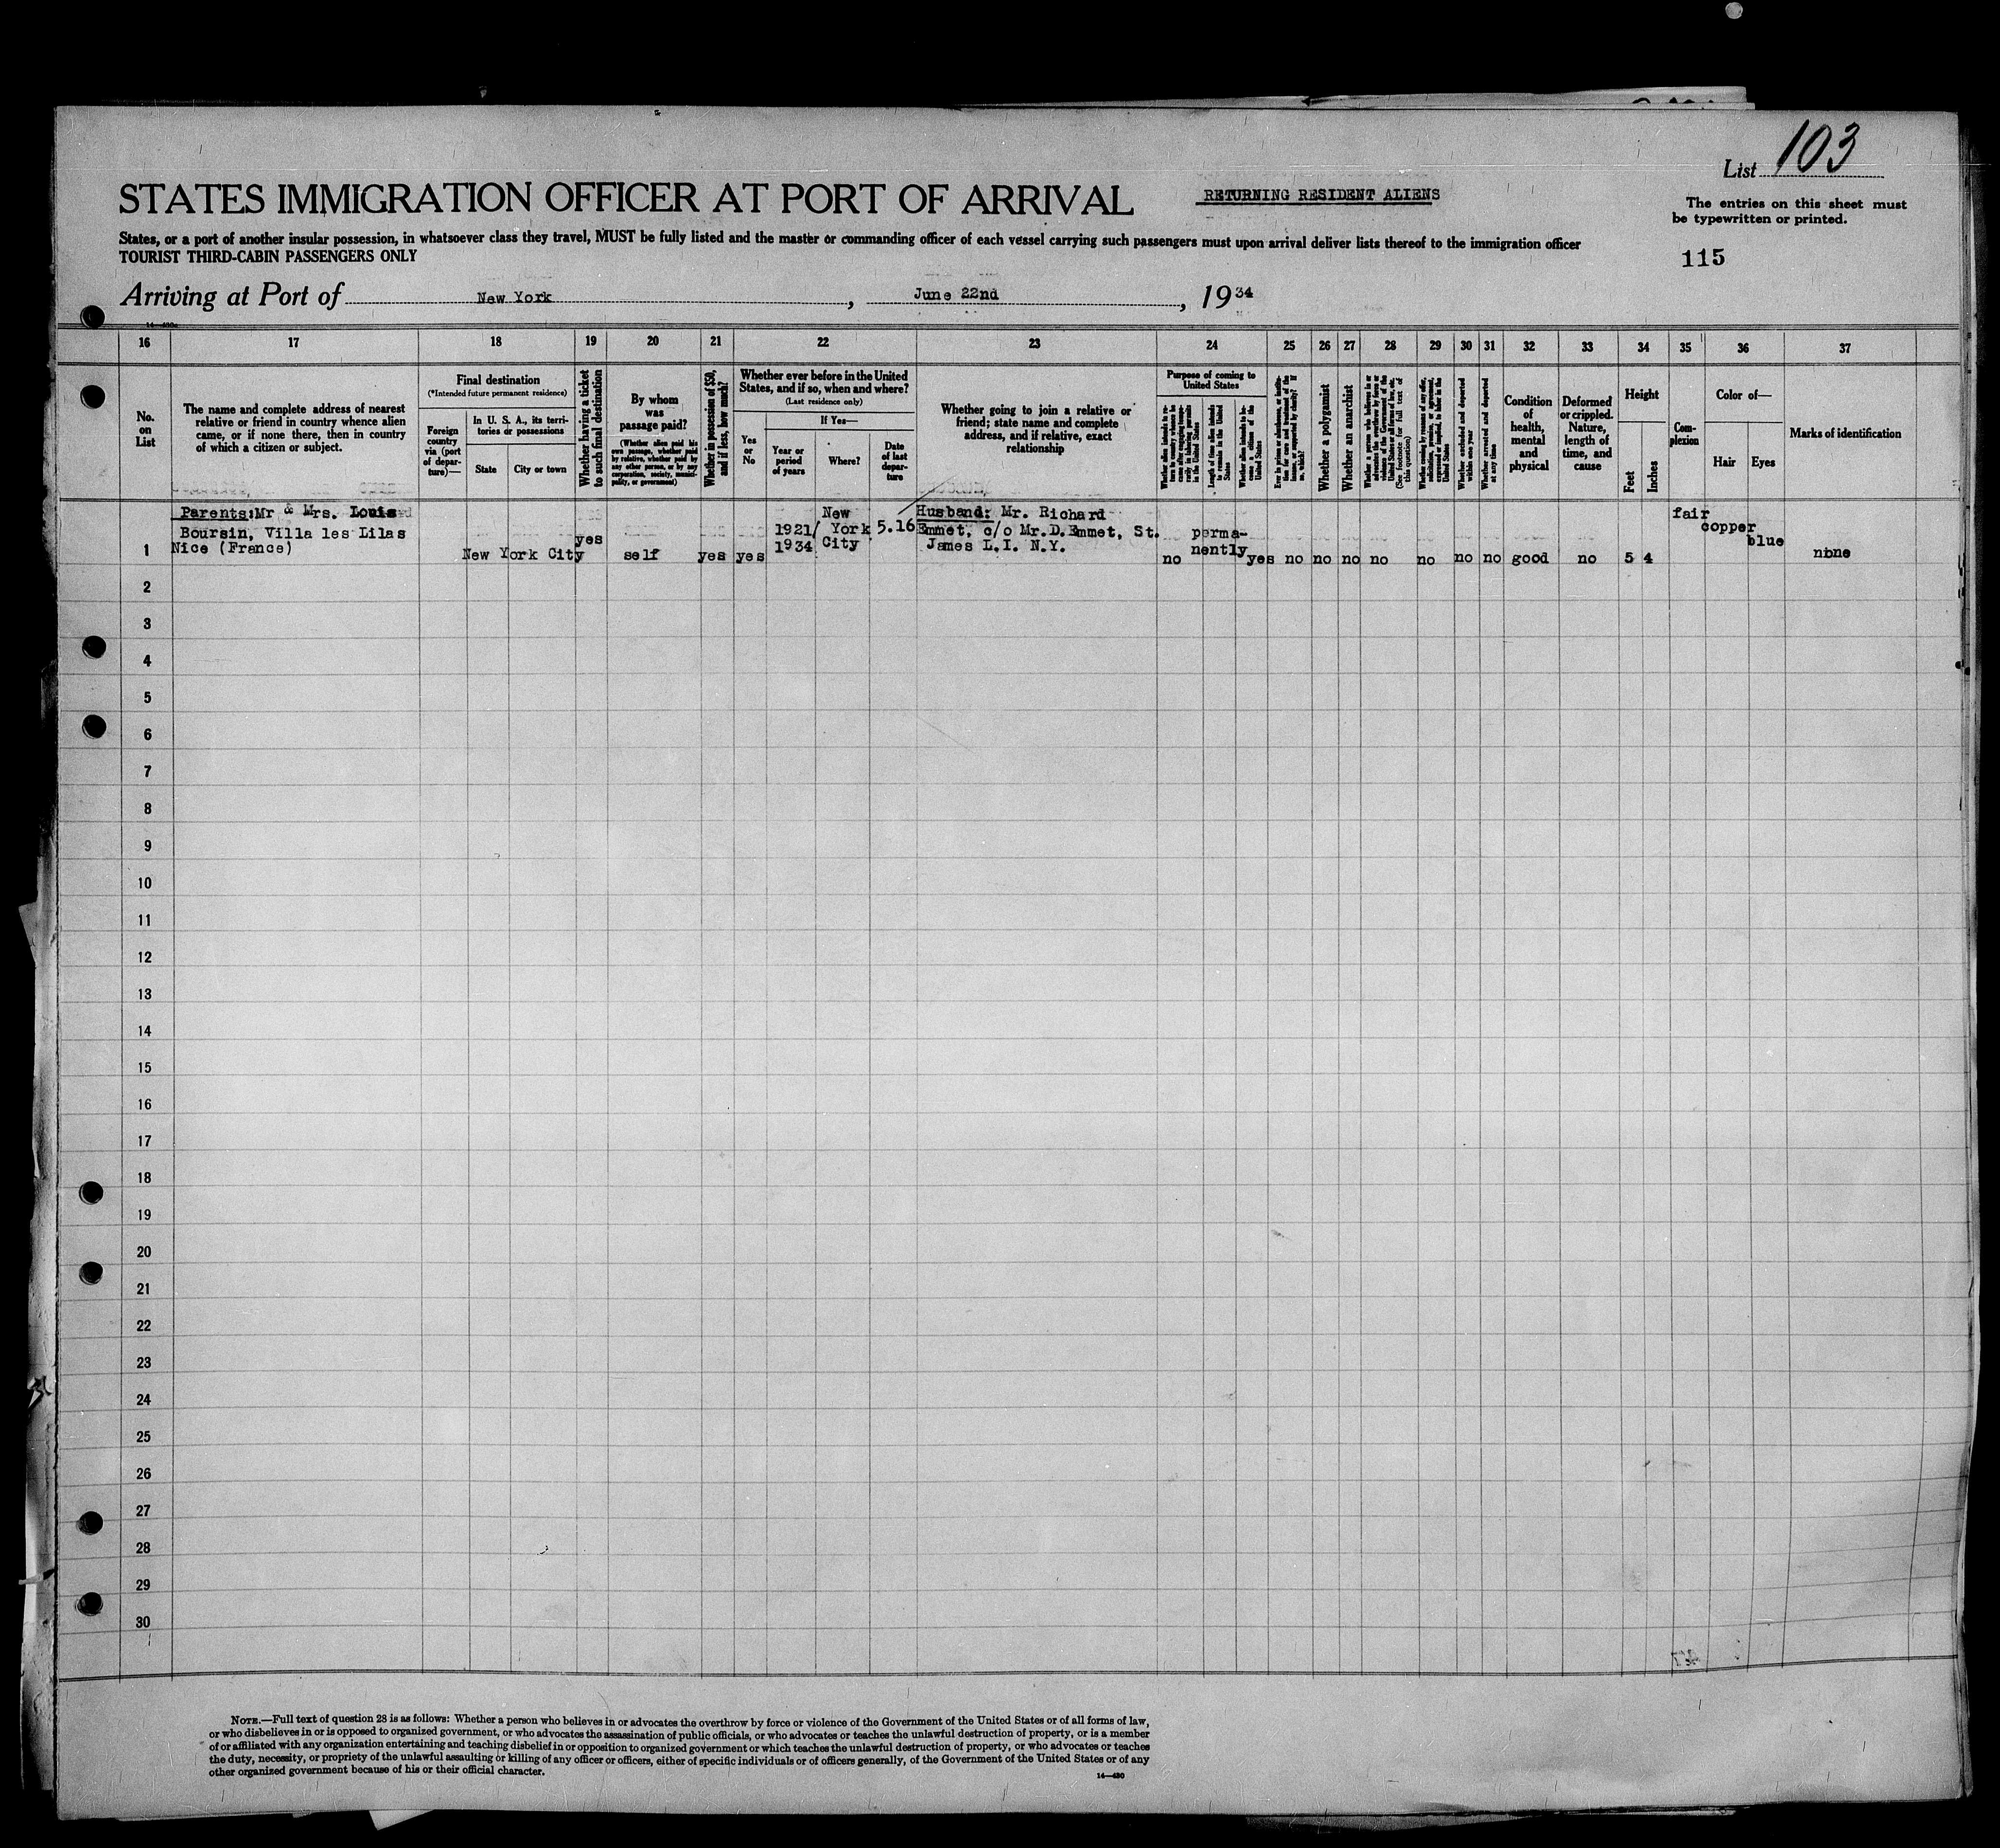 List 103
STATES IMMIGRATION OFFICER AT PORT OF ARRIVAL
RETURNING RESIDENT ALIENS
The entries on this sheet must
be typewritten or printed.
States, or a port of another insular possession, in whatsoever class they travel, MUST be fully listed and the master or commanding officer of each vessel carrying such passengers must upon arrival deliver lists thereof to the immigration officer
TOURIST THIRD-CABIN PASSENGERS ONLY
115
Arriving at Port of New York, June 22nd, 1934
16 17 18 19 20 21 22 23 24 25 26 27 28 29 30 31 32 33 34 35 36 37
No.
on
List
The name and complete address of nearest
relative or friend in country whence alien
came, or if none there, then in country
of which a citizen or subject.
Final destination
(*Intended future permanent residence)
Foreign
country
via (port
of depar-
ture)—
In U. S. A., its terri-
tories or possessions
State
City or town
Whether having a ticket
to such final destination
By whom
was
passage paid?
(Whether alien paid his
own passage, whether paid
by relative, whether paid by
any other person, or by any
corporation, society, munici-
pality, or government)
Whether in possession of $50,
and if less, how much?
Whether ever before in the United
States, and if so, when and where?
(Last residence only)
Yes
or
No
If Yes—
Year or
period
of years
Where?
Date
of last
depar-
ture
Whether going to join a relative or
friend; state name and complete
address, and if relative, exact
relationship
Purpose of coming to
United States
Length of time alien intends
to remain in the United
States
Whether alien intends to be-
come a citizen of the
United States
Whether a polygamist
Whether an anarchist
(See footnote for full text of
this question)
Whether excluded and deported
within one year
Whether arrested and deported
at any time
Condition
of
health,
mental
and
physical
Deformed
or crippled.
Nature,
length of
time, and
cause
Height
Feet
Inches
Com-
plexion
Color of—
Hair
Eyes
Marks of identification
1
Parents: Mr & Mrs. Louis
Boursin, Villa les Lilas
Nice (France)
New York City
yes
self
yes
yes
1921/
1934
New
York
City
5.16
Husband: Mr. Richard
Emmet, c/o Mr.D.Emmet, St.
James L.I. N.Y.
no
perma-
nently
yes
no
no
no
no
no
no
no
good
no
5 4
fair
copper
blue
none
2
3
4
5
6
7
8
9
10
11
12
13
14
15
16
17
18
19
20
21
22
23
24
25
26
27
28
29
30
NOTE.—Full text of question 28 is as follows: Whether a person who believes in or advocates the overthrow by force or violence of the Government of the United States or of all forms of law,
or who disbelieves in or is opposed to organized government, or who advocates the assassination of public officials, or who advocates or teaches the unlawful destruction of property, or is a member
of or affiliated with any organization entertaining and teaching disbelief in or opposition to organized government or which teaches the unlawful destruction of property, or who advocates or teaches
the duty, necessity, or propriety of the unlawful assaulting or killing of any officer or officers, either of specific individuals or of officers generally, of the Government of the United States or of any
other organized government because of his or their official character.
14—430